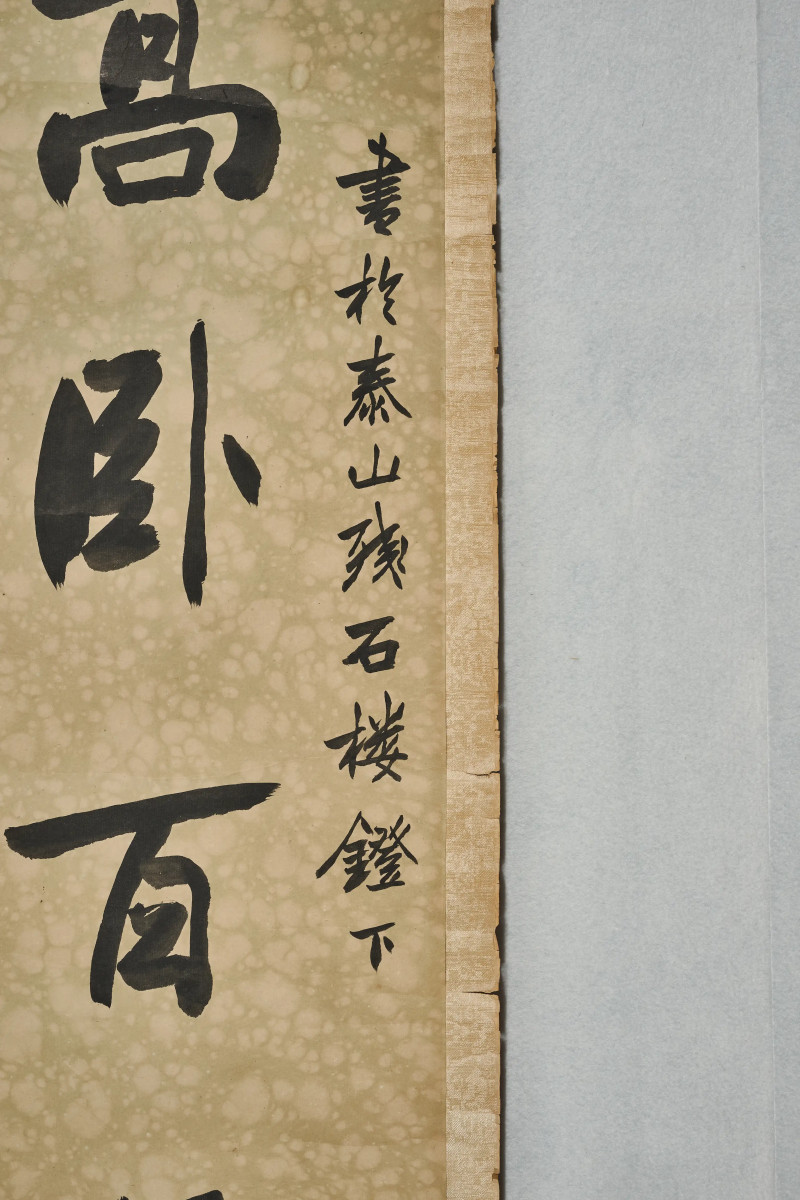 書於泰山残石楼鐙下
高卧百